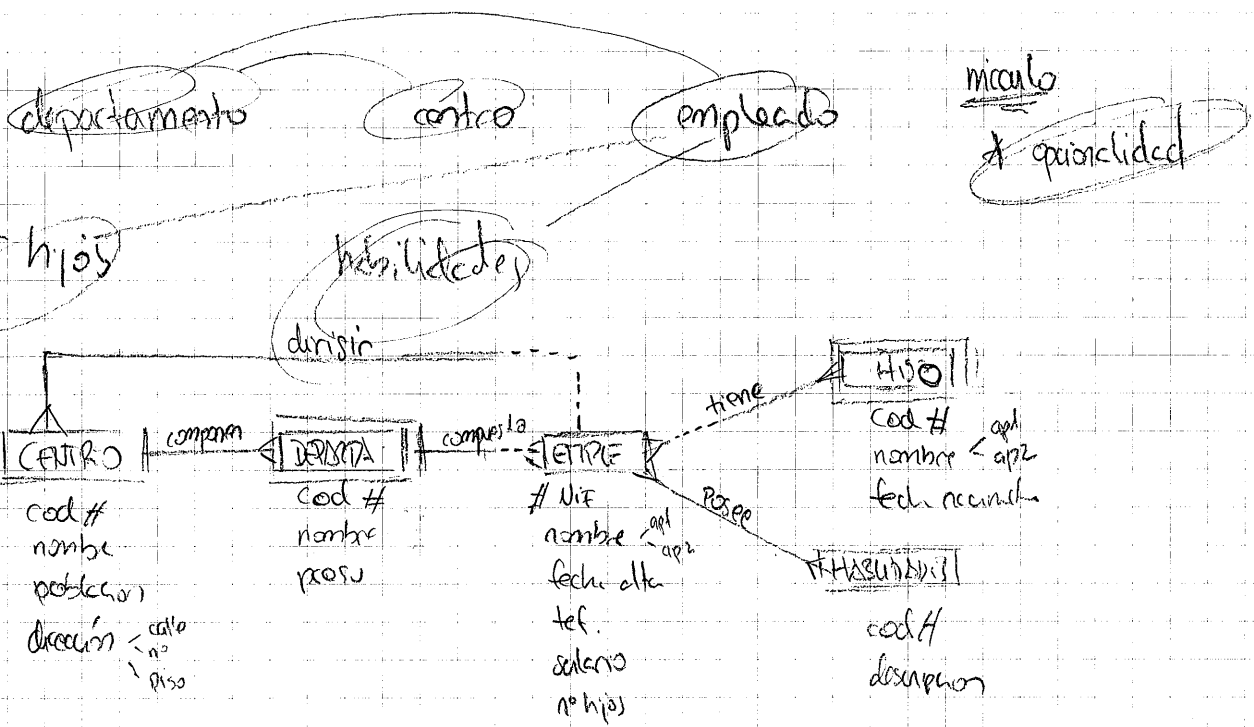 departamento
centro
empleado
* opcionalidad
hijos
habilidades
dirigir
CENTRO
componen
DEPARTA
compuesto
EMPLE
tiene
HIJO
Posee
cod #
nombre
poblacion
dirección calle
nº
piso
cod #
nombre
# NIF
nombre ap1
ap2
fecha alta
tef.
salario
nº hijos
cod #
nombre ap1
ap2
cod #
descripcion